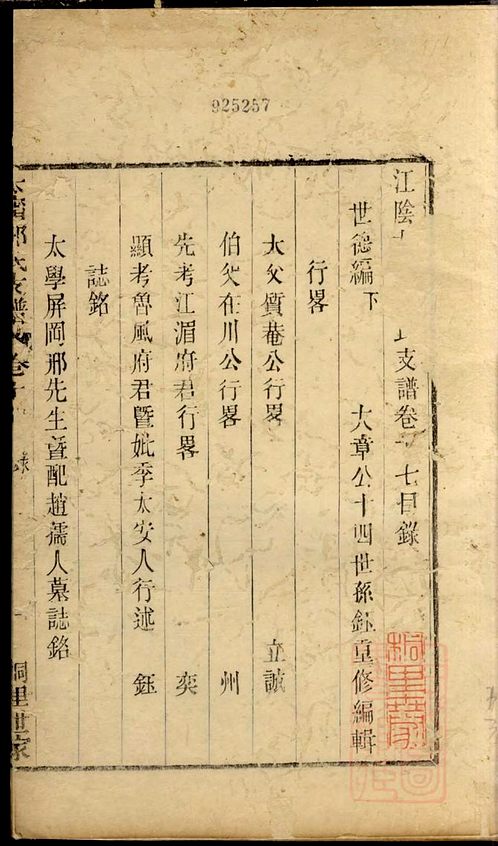 925257
江陰 支譜卷十七目錄
世德編下 大章公十四世孫鈺重修編輯
行畧
大父質菴公行畧 立誠
伯父在川公行畧 州
先考江湄府君行畧 奕
顯考魯風府君暨妣季太安人行述 鈺
誌銘
太學屏岡邢先生暨配趙孺人墓誌銘
支譜 卷十
桐里世家